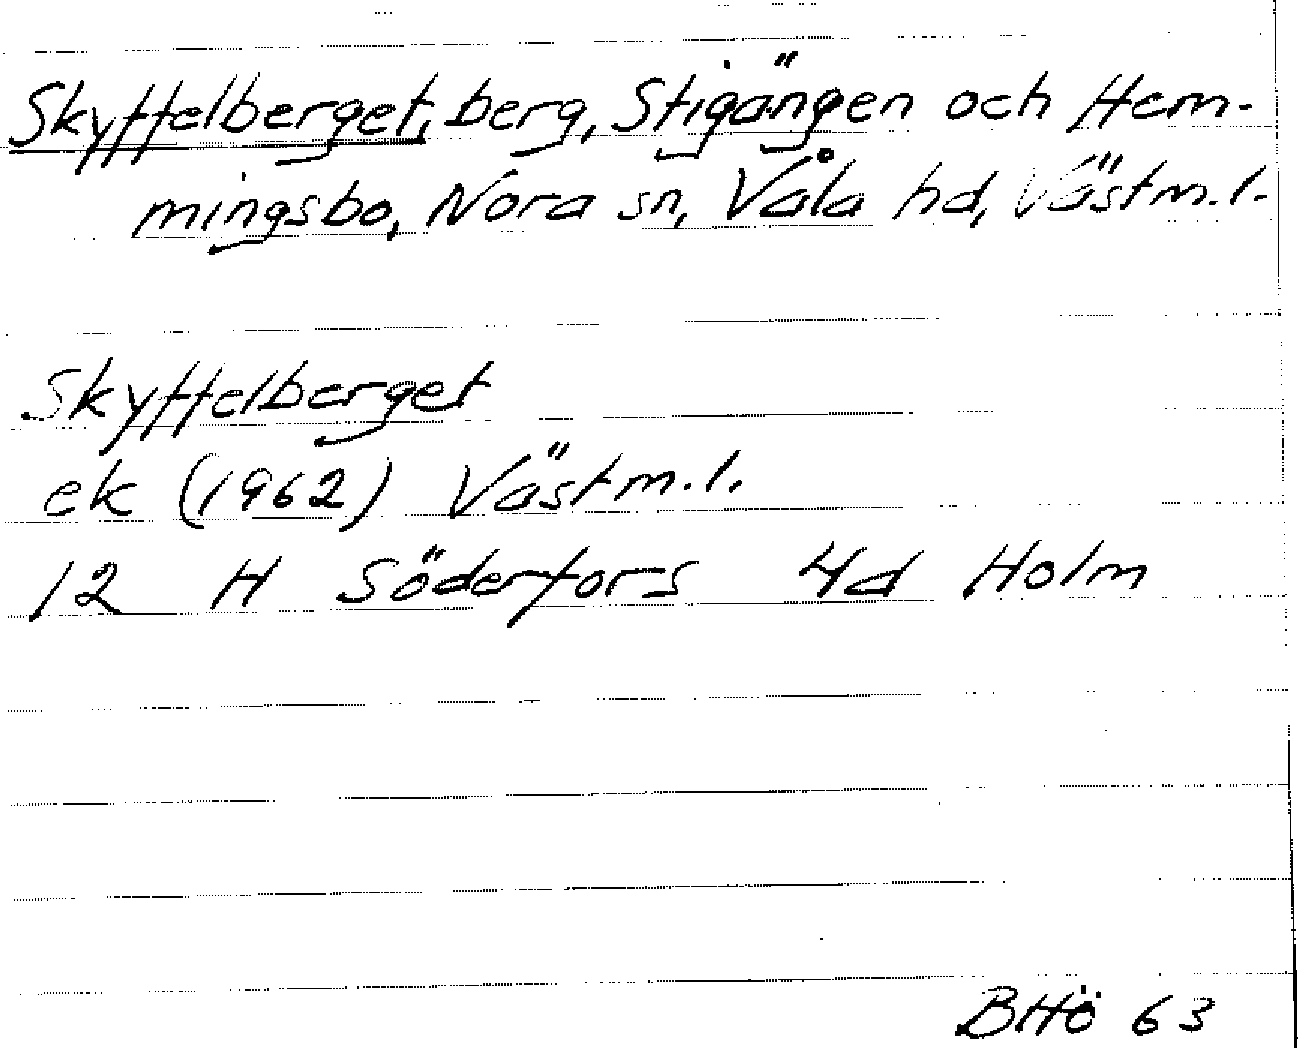 Skyffelberget, berg, Stigängen och Hem-
mingsbo, Nora sn, Våla hd, Västm.l.
Skyffelberget
ek (1962) Västm.l.
12 H Söderfors 4d Holm
BHö 63